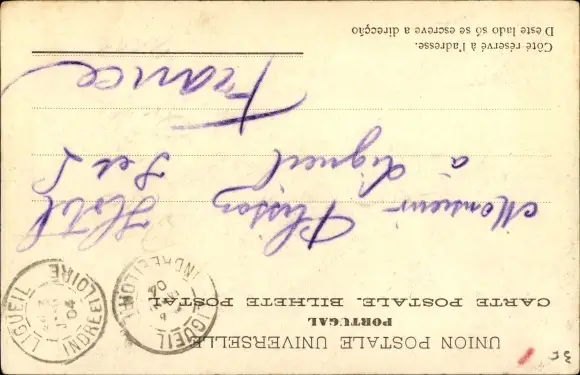 UNION POSTALE UNIVERSELLE
PORTUGAL
CARTE POSTALE. BILHETE POSTAL
Monsieur Plisson Hôtel
à Ligueil I et L
France
Côté réservé à l'adresse.
D este lado só se escreve a direcção
LIGUEIL
INDRE ET LOIRE
04
LIGUEIL
INDRE ET LOIRE
04